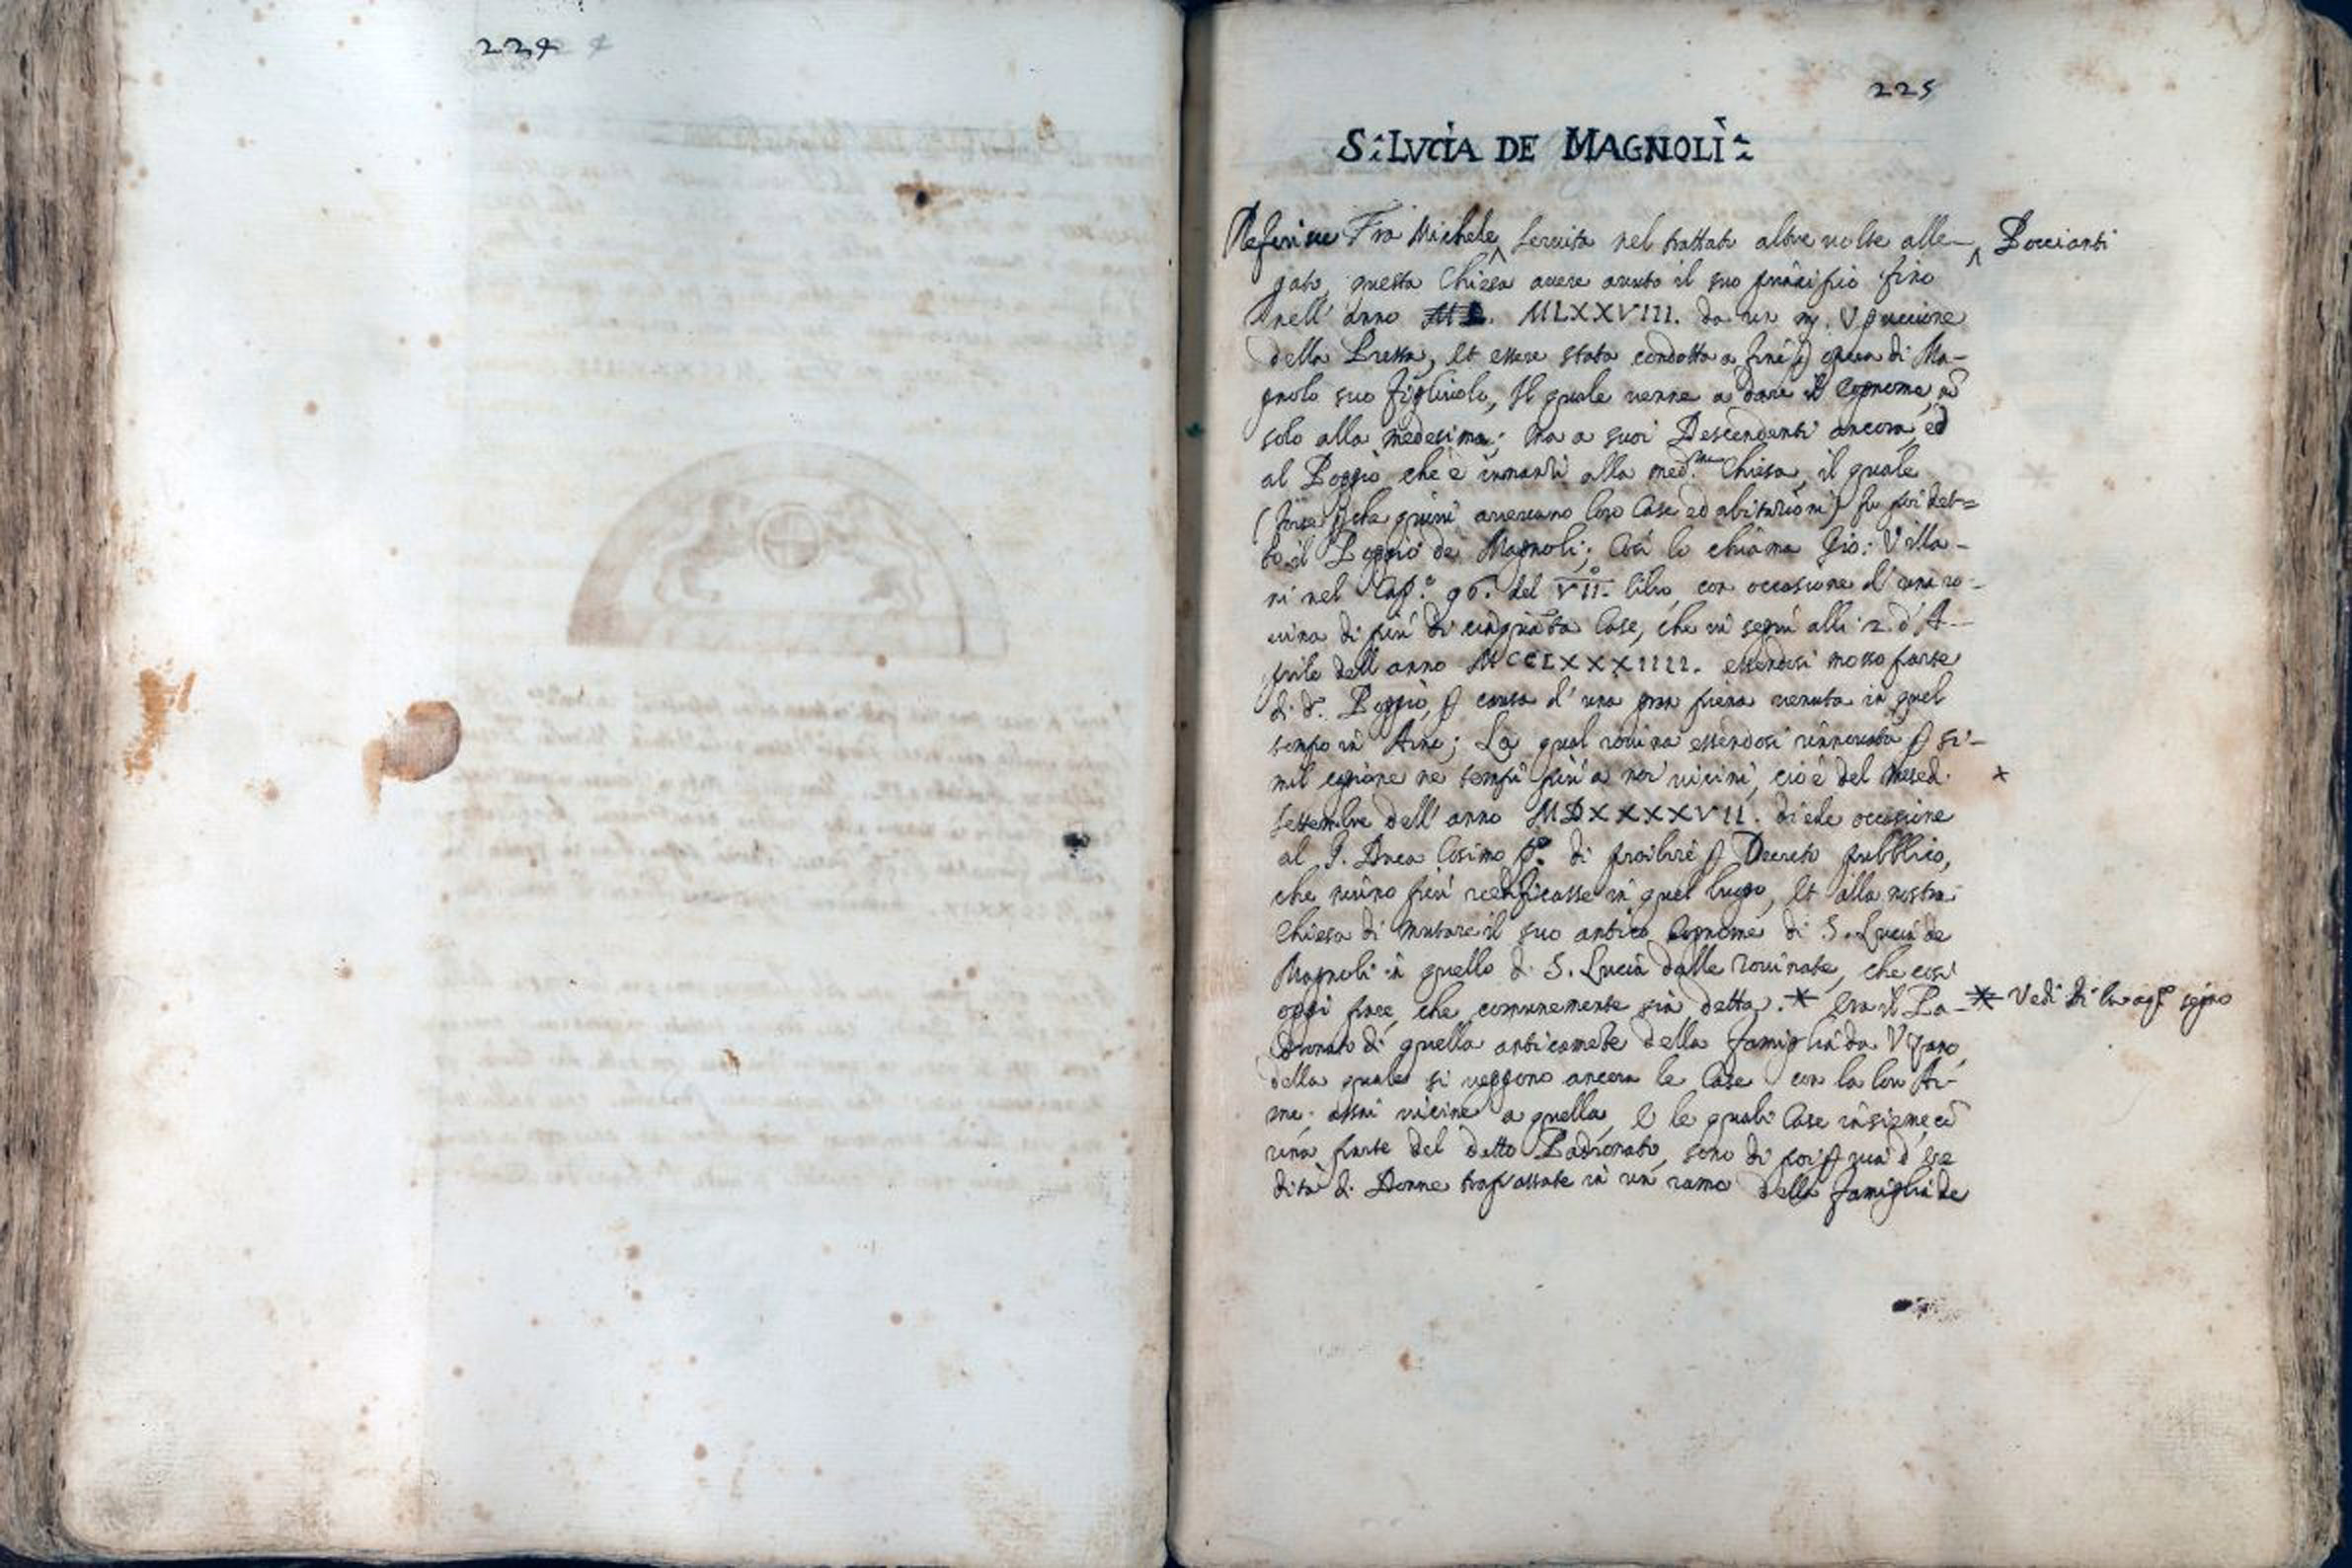 224
225
S: LVCIA DE MAGNOLI
Referisce Fra Michele Seruita nel trattato altre uolte alle- Poccianti
gato, questa Chiesa auere auuto il suo principio fino
nell' anno MLXXVIII. da un m. Vguccione
della Pressa, et essere stata condotta a fine opera di Ma-
gnolo suo figliuolo, Il quale uenne a dare il Cognome, nō
solo alla medesima; ma a suoi Descendenti ancora, ed
al Poggio che è innanzi alla med.ma Chiesa, il quale
(forse che quiui aueuano loro Case ed abituzioni) fu poi det=
to il Poggio de Magnoli; Così lo chiama Gio: Villa-
ni nel Cap.o 96. del VII.o libro, con occasione d'una ro-
uina di più di cinquāta Case, che ui seguì alli 2 d'A-
prile dell anno MCCLXXXIIII. essendosi mosso parte
di d.o Poggio, causa d'una gran piena uenuta in quel
tempo in Arno; La qual rouina essendosi rinnouata si-
mil cagione ne tempi più a noi uicini, cioè del mese d. x
settembre dell' anno MDXXXXVII. diede occasione
al Duca Cosimo p.o di proibire Decreto pubblico,
che niuno più reedificasse in quel luogo, et alla nostra
Chiesa di mutare il suo antico Cognome di S. Lucia de
Magnoli in quello di S. Lucia dalle rouinate, che così
oggi piace, che comunemente sia detta. * Era il Pa- * Vedi di segno
dronato di quella anticamēte della famiglia da Vzano,
della quale si veggono ancora le Case con la lor Ar-
me, assai uicine a quella, e le quali Case insieme, cō
una parte del detto Padronato, sono di poi uia d' ere
dità di Donne trapassate in un ramo della famiglia de